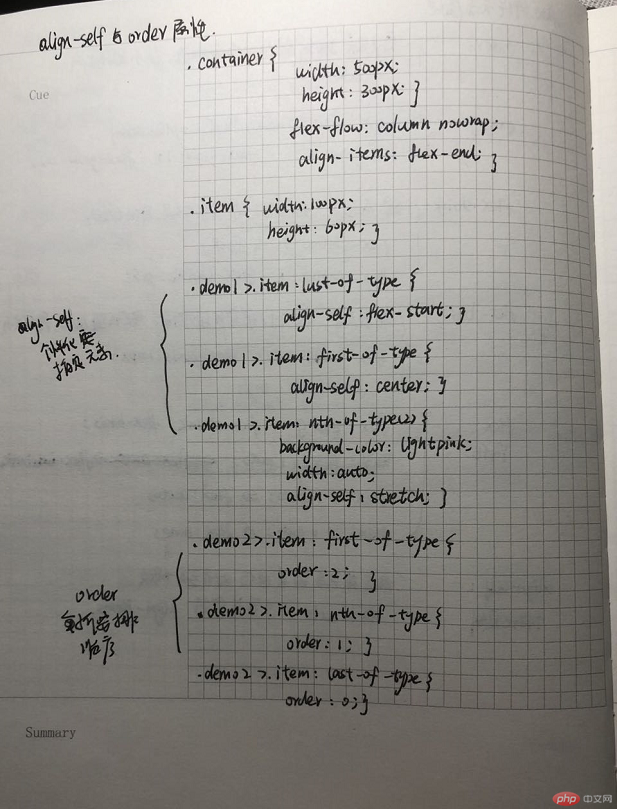 align-self 与 order 属性.
Cue
.container {
width: 500px;
height: 300px; }
flex-flow: column nowrap;
align-items: flex-end; }
.item { width: 100px;
height: 60px; }
.demo1 >.item:last-of-type {
align-self: flex-start; }
align-self:
个性化
指定元素.
.demo1 >.item: first-of-type {
align-self: center; }
.demo1 >.item: nth-of-type(2) {
background-color: lightpink;
width: auto;
align-self: stretch; }
.demo2>.item: first-of-type {
order: 2; }
order
重新
顺序
.demo2>.item: nth-of-type {
order: 1; }
.demo2>.item: last-of-type {
order: 0; }
Summary
php 中文网